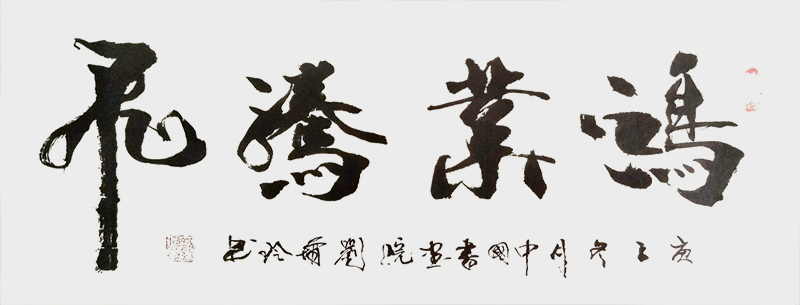 鴻業騰飛
庚子冬月中國書畫院劉爾玲书